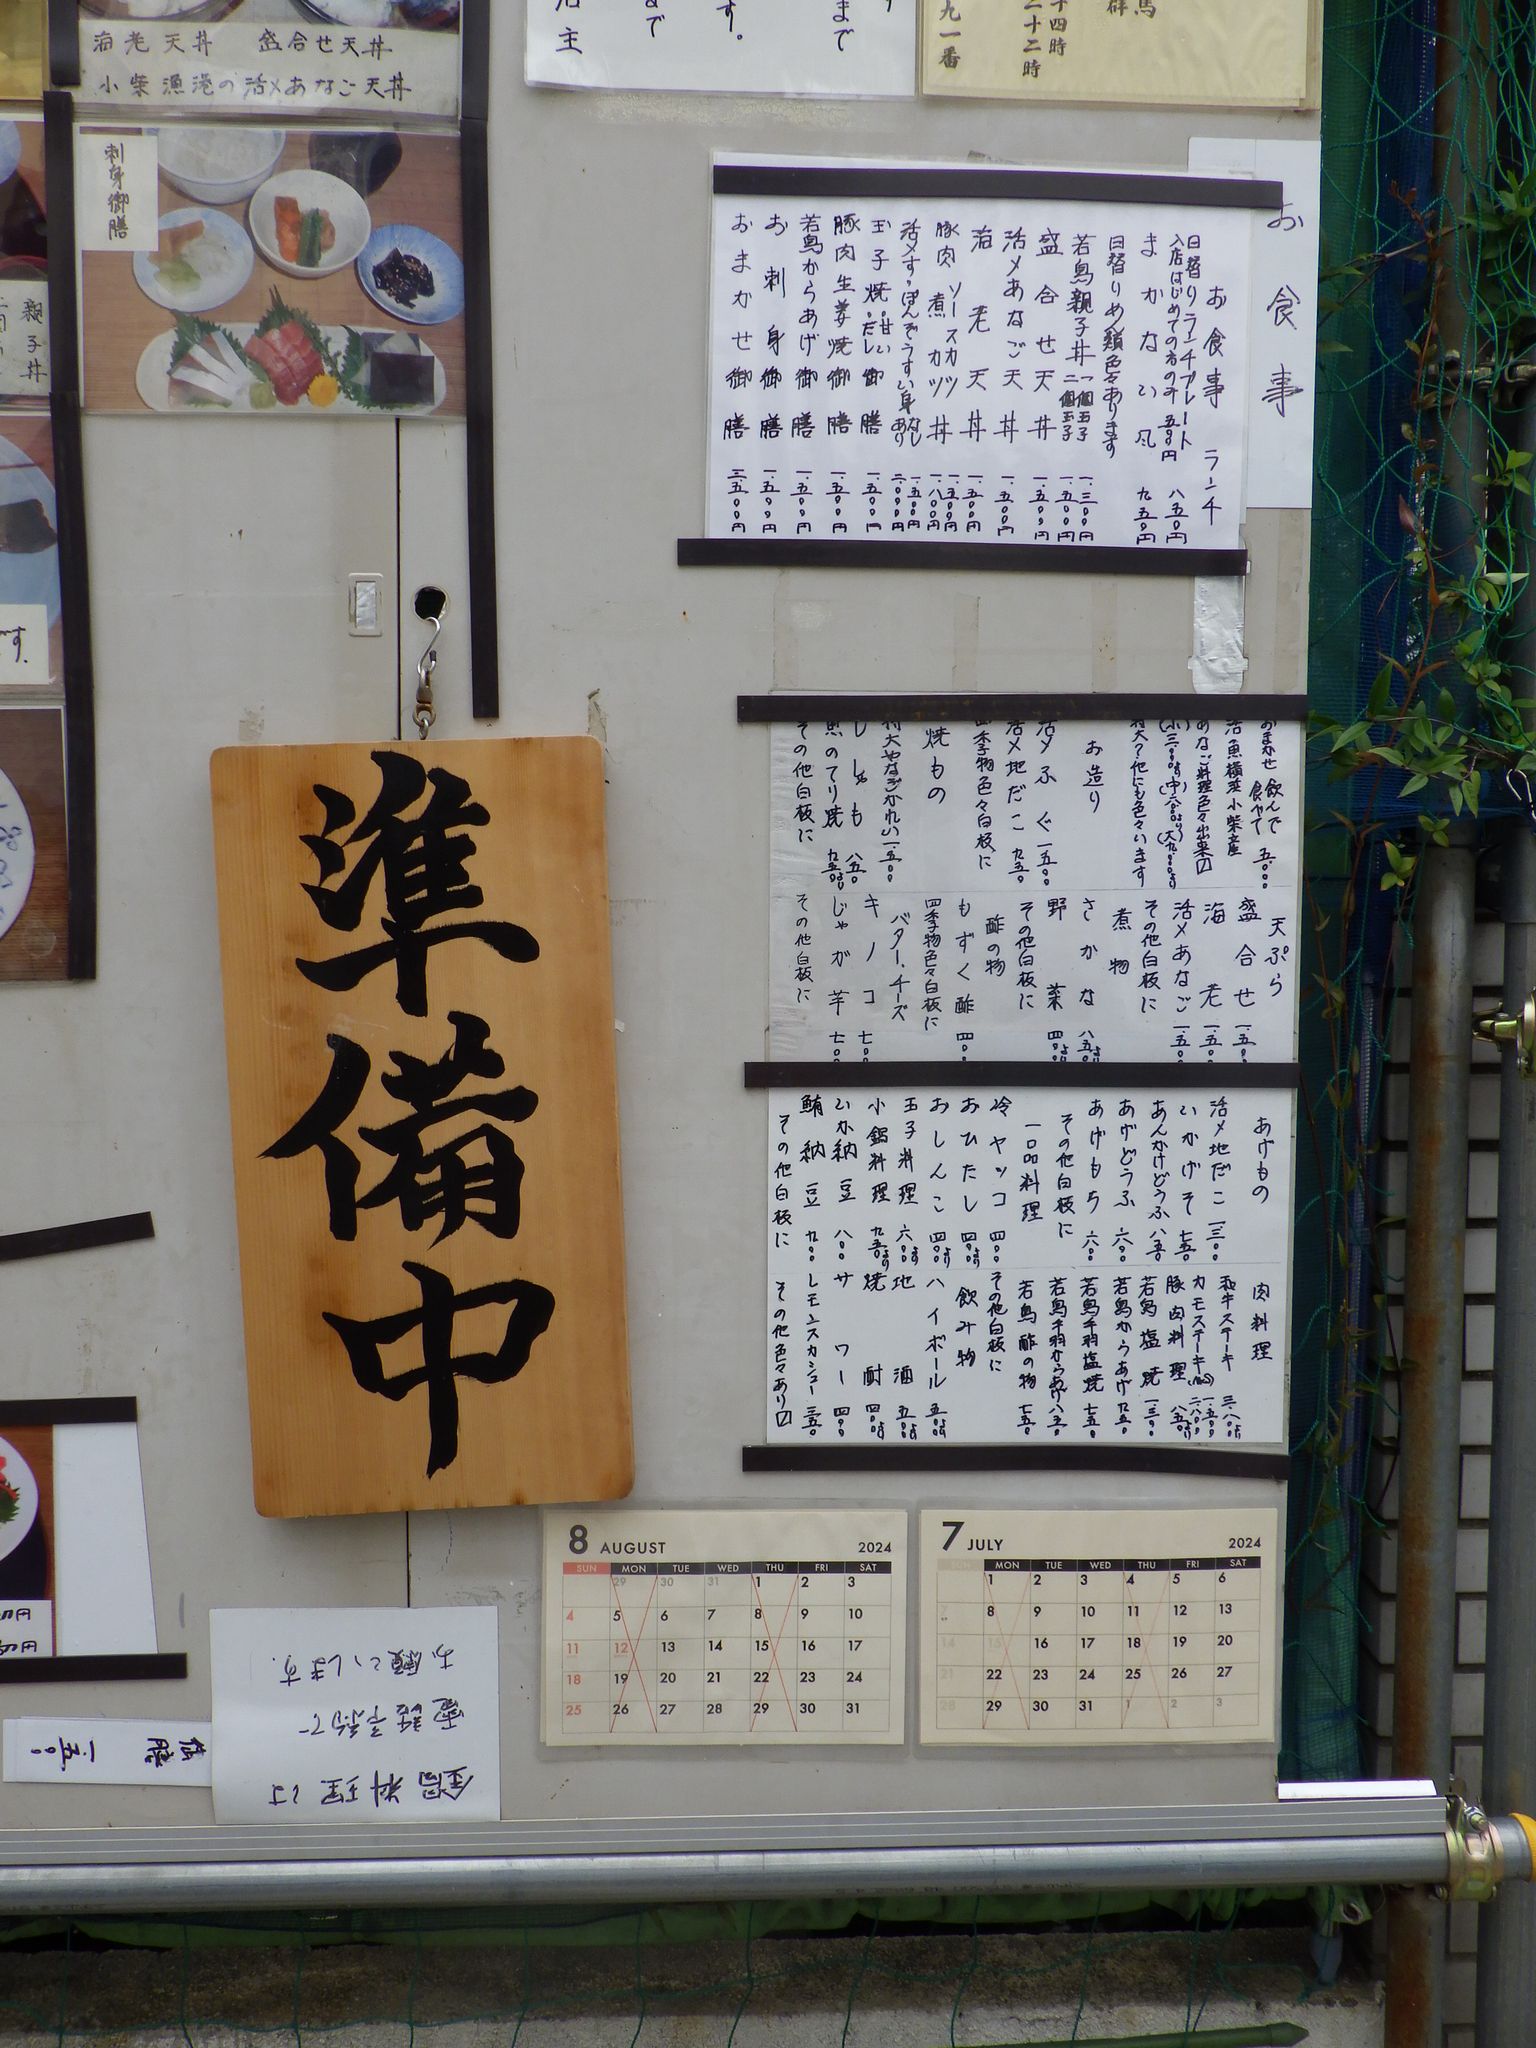 海老天丼 盛合せ天丼
小柴漁港の活〆あなご天丼
刺身御膳
親子丼
店主
まで
す。
まで
九一番
二十二時
十四時
群馬
お食事
お食事 ランチ
日替りランチプレート 八五〇円
入店はじめての方のみ 五〇〇円
まかない風 九五〇円
日替りめん類色々あります
若鳥親子丼 一個玉子 一.三〇〇円
二個玉子 一.五〇〇円
盛合せ天丼 一.五〇〇円
活〆あなご天丼 一.五〇〇円
海老天丼 一.五〇〇円
豚肉 ソースカツ 煮カツ 丼 一.五〇〇円
一.八〇〇円
活〆すっぽんぞうすい 身 なし あり 一.五〇〇円
二.〇〇〇円
玉子焼 甘い だし 御膳 一.五〇〇円
豚肉生姜焼御膳 一.五〇〇円
若鳥からあげ御膳 一.五〇〇円
お刺身御膳 一.五〇〇円
おまかせ御膳 三.五〇〇円
おまかせ 飲んで 食べて 五.〇〇〇
活魚横浜小柴産
あなご料理色々出来〼
特大?他にも色々います
お造り
活〆ふぐ 一.五〇〇
活〆地だこ 九五〇
四季物色々白板に
焼もの
特大やなぎかれい 一.五〇〇
ししゃも 八五〇
魚のてり焼 九五〇より
その他白板に
天ぷら
盛合せ 一.五〇〇
海老 一.五〇〇
活〆あなご 一.五〇〇
その他白板に
煮物
さかな 八五〇より
野菜 四〇〇より
その他白板に
酢の物
もずく酢 四〇〇
四季物色々白板に
バター、チーズ
キノコ 七〇〇
じゃが芋 七〇〇
その他白板に
あげもの
活〆地だこ 一.三〇〇
いかげそ 七五〇
あんかけどうふ 八五〇
あげどうふ 六〇〇
あげもち 六〇〇
その他白板に
一品料理
冷ヤッコ 四〇〇
おひたし 四〇〇より
おしんこ 四〇〇より
玉子料理 六〇〇より
小鍋料理 九五〇より
いか納豆 八〇〇
鮪納豆 九〇〇
その他白板に
肉料理
和牛ステーキ 三.八〇〇より
カモステーキ 一.五〇〇
二.八〇〇
豚肉料理 八五〇より
若鳥塩焼 一.三〇〇
若鳥からあげ 九五〇
若鳥手羽塩焼 七五〇
若鳥手羽からあげ 八五〇
若鳥酢の物 七五〇
その他白板に
飲み物
ハイボール 五〇〇より
地酒 五〇〇より
焼酎 四〇〇より
サワー 四〇〇
レモンスカッシュー 三五〇
その他色々あり〼
準備中
8 AUGUST 2024
SUN MON TUE WED THU FRI SAT
29 30 31 1 2 3
4 5 6 7 8 9 10
11 12 13 14 15 16 17
18 19 20 21 22 23 24
25 26 27 28 29 30 31
7 JULY 2024
SUN MON TUE WED THU FRI SAT
1 2 3 4 5 6
7 8 9 10 11 12 13
14 15 16 17 18 19 20
21 22 23 24 25 26 27
28 29 30 31 1 2 3
鍋料理は
電話予約で
お願いします.
御膳 一五〇〇